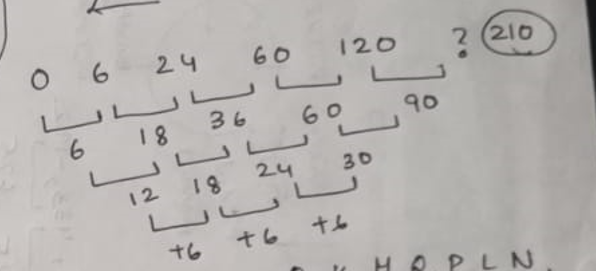 0 6 24 60 120 ? 210
6 18 36 60 90
12 18 24 30
+6 +6 +6
H O P L N